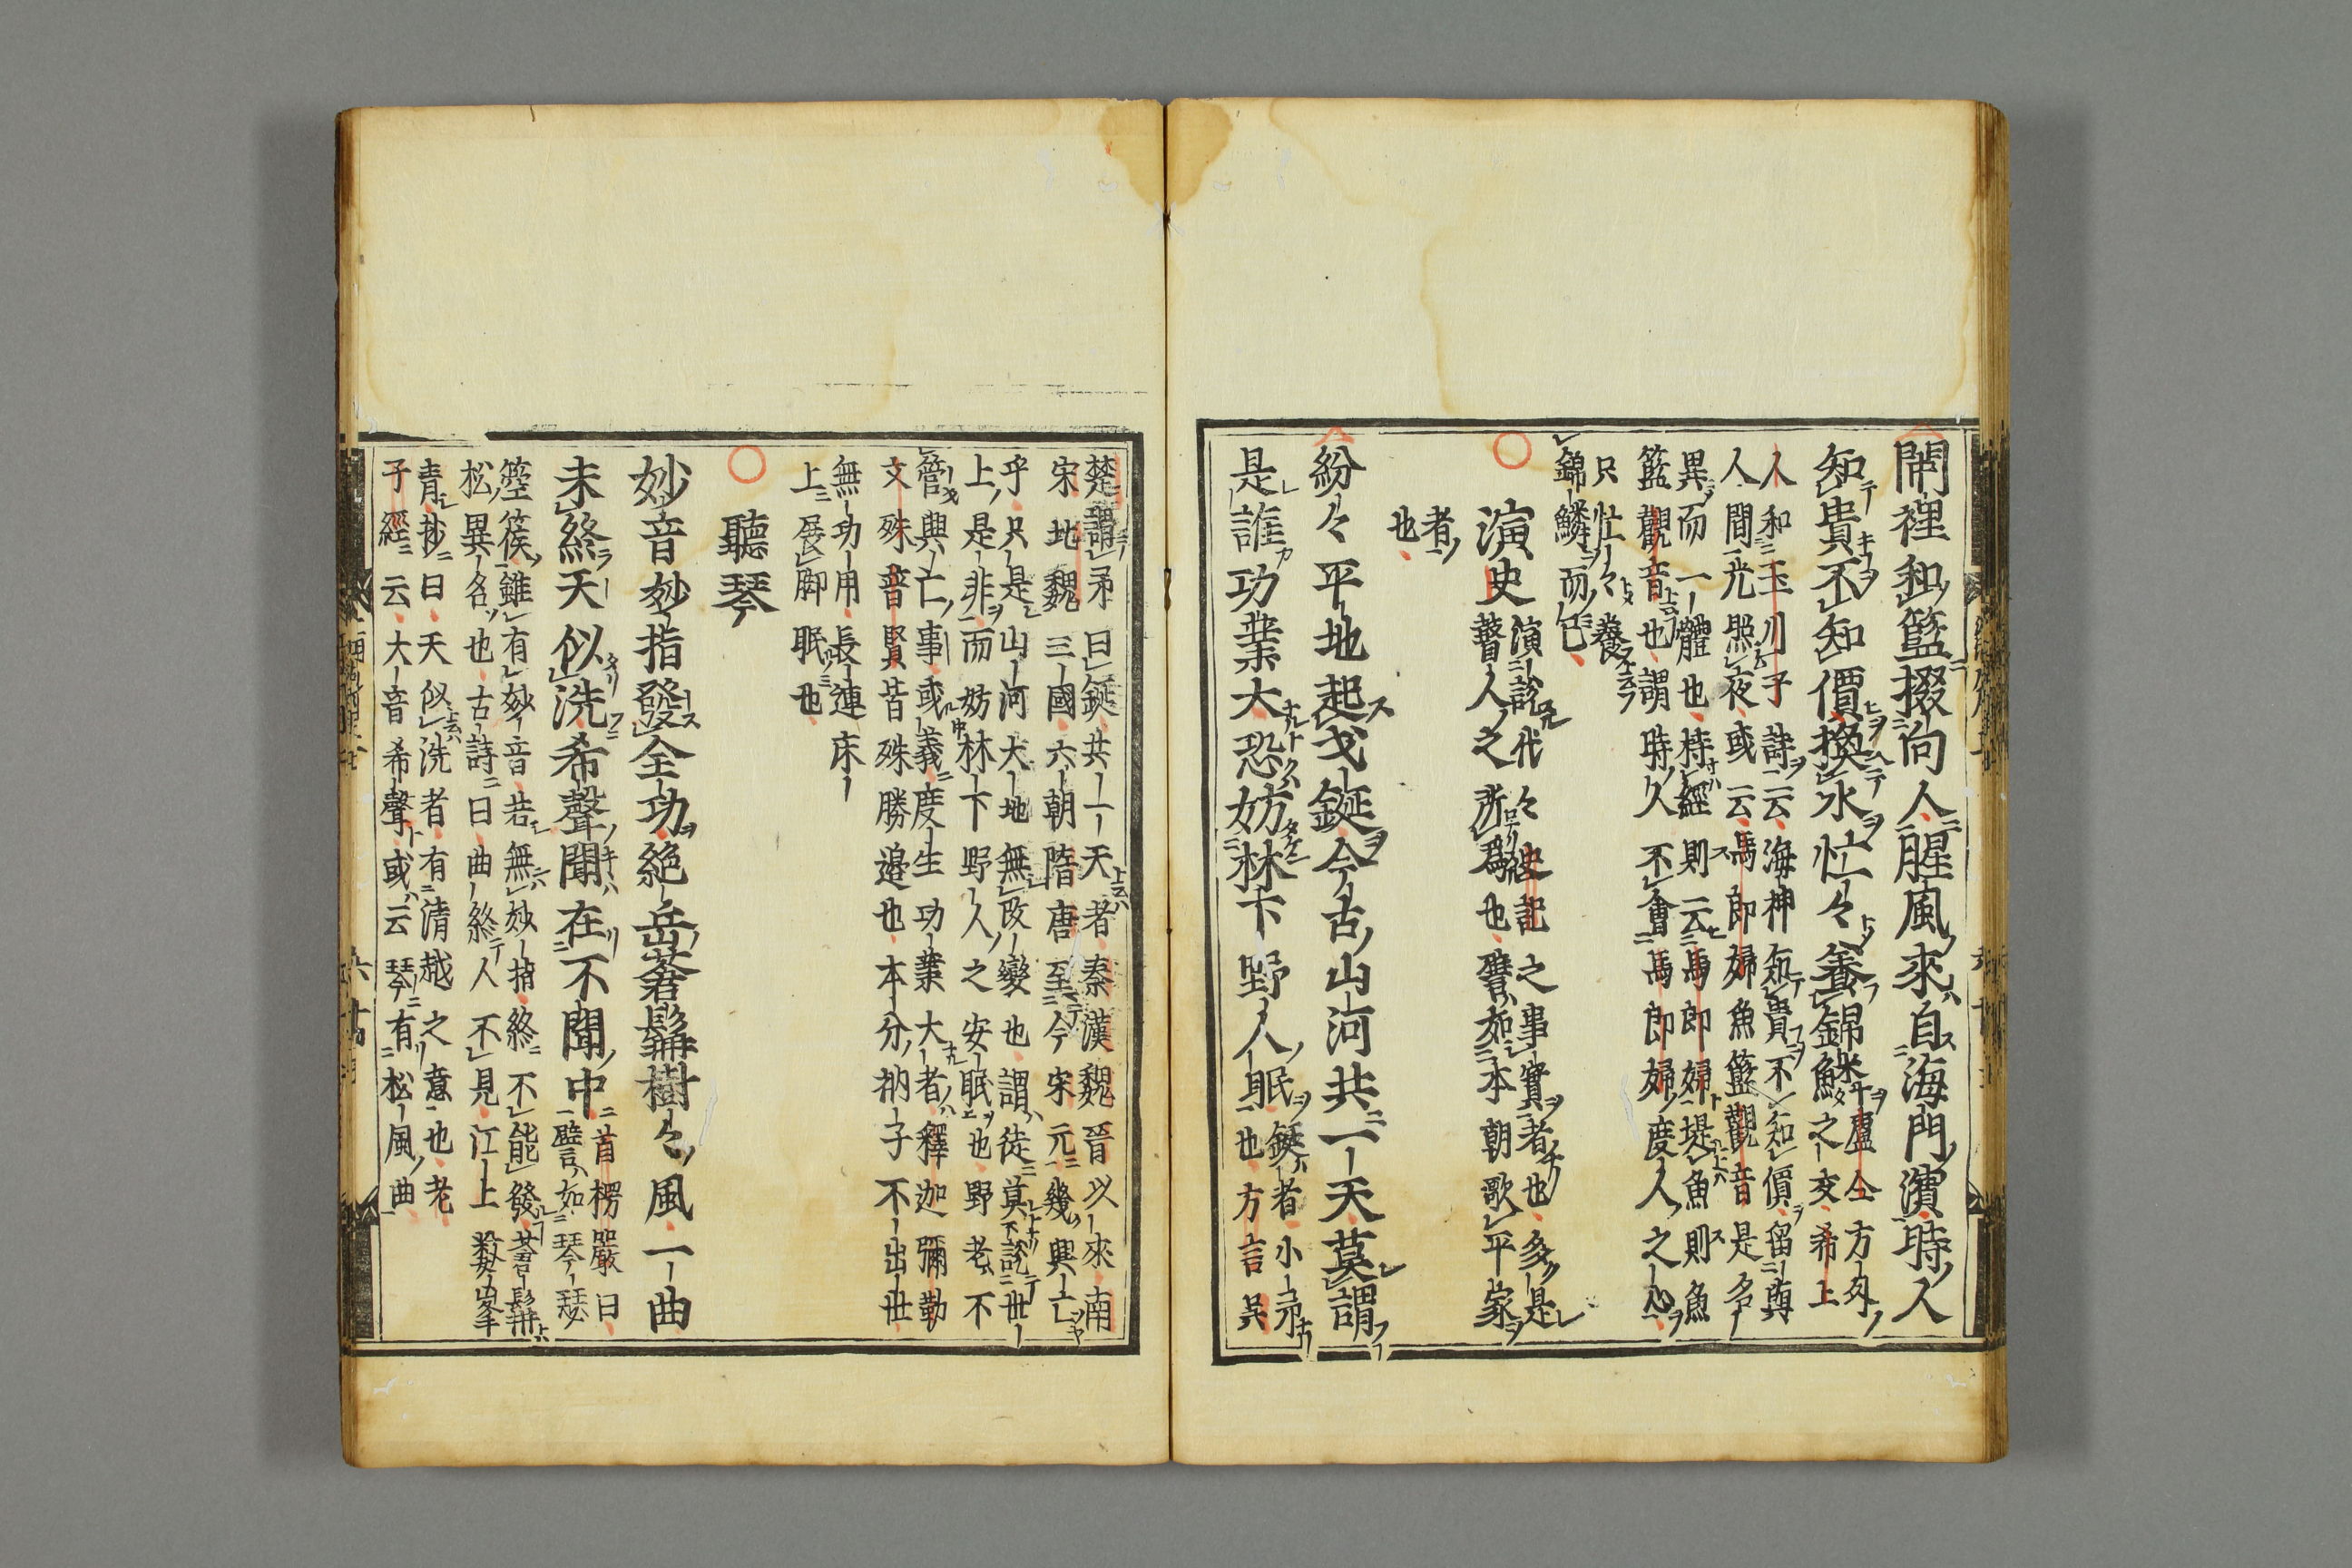 閙裡和籃掇向人腥風來自海門濱時人
知貴不知價換水忙々養錦鱗
盧仝方外
之交希上
人和玉川子詩云海神知貴不知價留與
人間光照夜或云馬郎婦魚籃觀音是名
異而一體也持經則云馬郎婦提魚則魚
籃觀音也謂時久不會馬郎婦度人之心
只忙々養
錦鱗而已
演史
演說代々史記之事實者也多是
瞽人之所爲也譬如本朝歌平家
者
也
紛々平地起戈鋋今古山河共一天莫謂
是誰功業大恐妨林下野人眠
鋋者小矛
也方言呉
楚謂矛曰鋋共一天者秦漢魏晉以來南
宋地魏三國六朝隋唐至今宋元幾興亡
乎只是山河大地無改變也謂徒莫說世
上是非而妨林下野人之安眠也野老不
管興亡事或義度生功業大者釋迦彌勒
文殊普賢昔殊勝邉也本分衲子不出世
無功用長連床
上展脚眠也
聽琴
妙音妙指發全功絶岳萶鬅樹々風一曲
未終天似洗希聲聞在不聞中
首楞嚴曰
譬如琴瑟
箜篌雖有妙音若無妙指終不能發萶鬅
松異名也古詩曰曲終人不見江上數峯
青抄曰天似洗者有清越之意也老
子經云大音希聲或云琴有松風曲